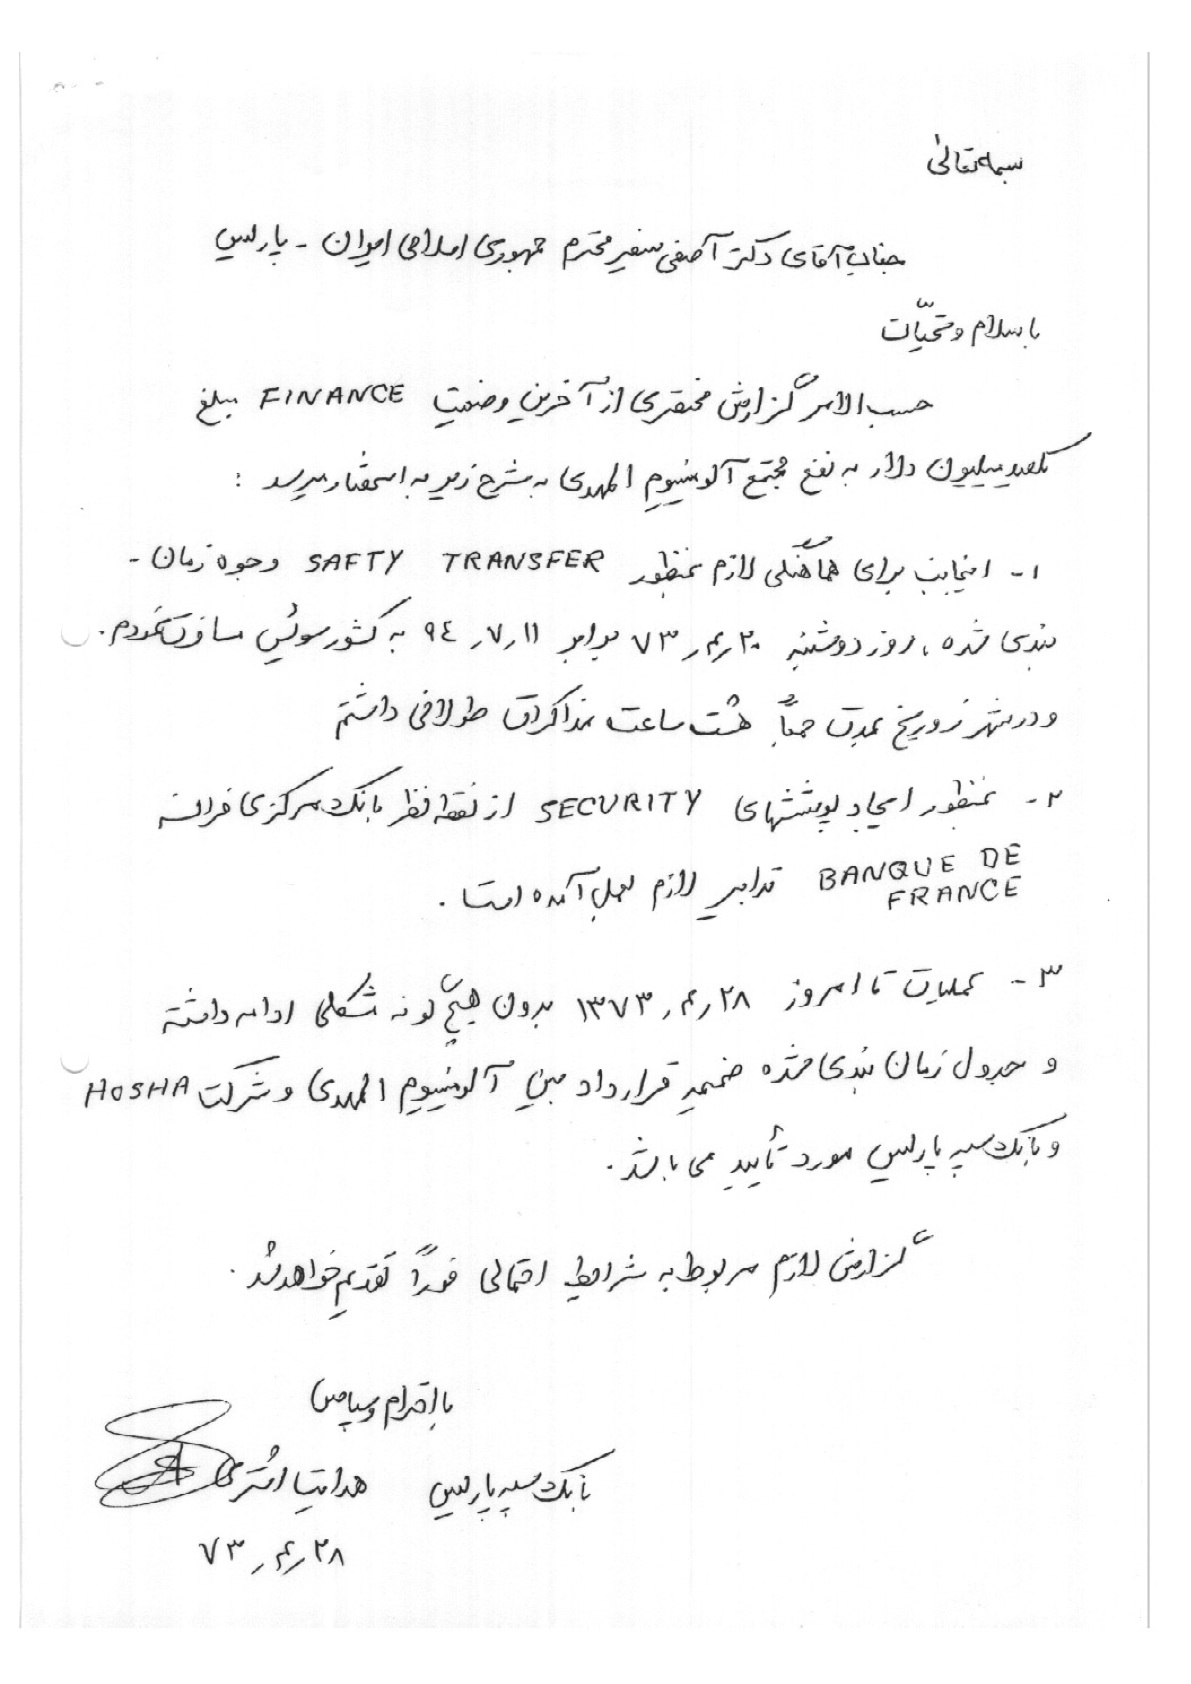 بسمه تعالی
جناب آقای دکتر آصفی سفیر محترم جمهوری اسلامی ایران - پاریس
با سلام و تحیّات
حسب الامر گزارش مختصری از آخرین وضعیت FINANCE مبلغ
یکصد میلیون دلار به نفع مجتمع آلومینیوم المهدی به شرح زیر به استحضار میرسد :
۱- اینجانب برای هماهنگی لازم بمنظور SAFTY TRANSFER وجوه زمان -
بندی شده ، روز دوشنبه ۲۰ر۴ر۷۳ برابر ۱۱ر۷ر۹٤ به کشور سوئیس مسافرت نمودم .
و در شهر زوریخ بمدت جمعاً هشت ساعت مذاکرات طولانی داشتم
۲- بمنظور ایجاد پوششهای SECURITY از نقطه نظر بانک مرکزی فرانسه
BANQUE DE FRANCE تدابیر لازم بعمل آمده است .
۳- عملیات تا امروز ۲۸ر۴ر۱۳۷۳ بدون هیچ گونه مشکلی ادامه داشته
و جدول زمان بندی شده ضمیمه قرارداد بین آلومینیوم المهدی و شرکت HOSHA
و بانک سپه پاریس مورد تأیید می باشد .
گزارش لازم مربوط به شرایط احتمالی فوراً تقدیم خواهد شد .
با احترام و سپاس
بانک سپه پاریس هدایت اشتری
۲۸ر۴ر۷۳